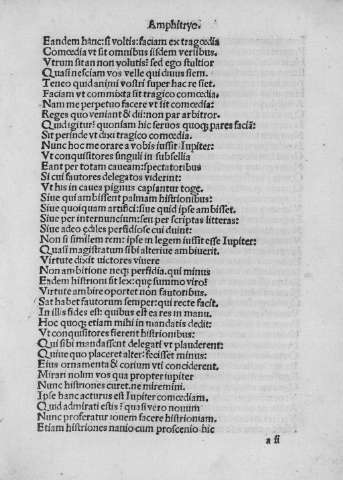 Amphitryo.
Eandem hanc: si voltis: faciam ex tragœdia
Comœdia vt sit omnibus iisdem versibus.
Vtrum sit an non volutis? sed ego stultior
Quasi nesciam vos velle qui diuus siem.
Teneo quid animi vostri super hac re siet.
Faciam vt commixta sit tragico comœdia.
Nam me perpetuo facere vt sit comœdia:
Reges quo veniant & dii: non par arbitror.
Quid igitur? quoniam hic seruos quoqʒ pares faciā:
Sit perinde vt dixi tragico comœdia.
Nunc hoc me orare a vobis iussit Iupiter:
Vt conquisitores singuli in subsellia
Eant per totam caueam: spectatoribus
Si cui fautores delegatos viderint:
Vt his in cauea pignus capiantur toge.
Siue qui ambissent palmam histrionibus:
Siue quoiquam artifici: siue quid ipse ambisset.
Siue per internuncium: seu per scriptas litteras:
Siue adeo ediles persidiose cui duint:
Non si similem rem: ipse in legem iussit esse Iupiter:
Quasi magistratum sibi alteriue ambiuerit.
Virtute dixit uictores viuere
Non ambitione neqʒ persidia. qui minus
Eadem histrioni sit lex: que summo viro?
Virtute ambire oportet non fautoribus.
Sat habet fautorum semper: qui recte facit.
In illis fides est: quibus est ea res in manu.
Hoc quoqʒ etiam mihi in mandatis dedit:
Vt conquisitores fierent histrionibus:
Qui sibi mandassent delegati vt plauderent:
Quiue quo placeret alter: fecisset minus:
Eius ornamenta & corium vti conciderent.
Mirari nolim vos qua propter iupiter
Nunc histriones curet. ne miremini.
Ipse hanc acturus est Iupiter comœdiam.
Quid admirati estis? quasi vero nouum
Nunc proferatur iouem facere histrioniam.
Etiam histriones nanio cum proscenio hic
a ii